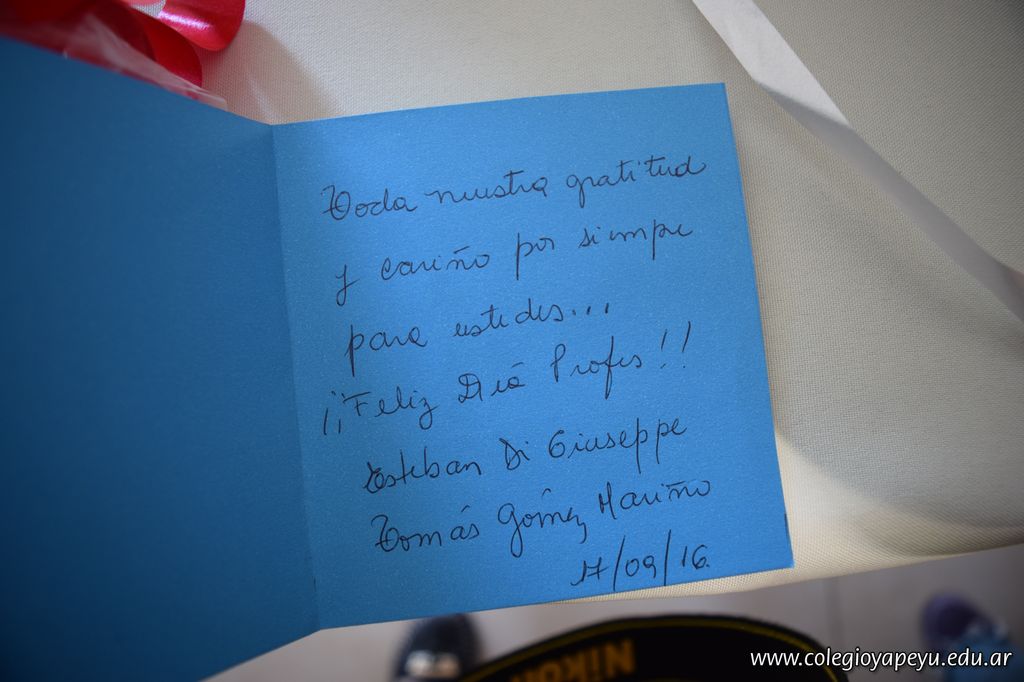 Toda nuestra gratitud
y cariño por siempre
para ustedes...
¡¡Feliz Diá Profes!!
Esteban Di Giuseppe
Tomás Gómez Mariño
17/09/16.
Nikon
www.colegioyapeyu.edu.ar